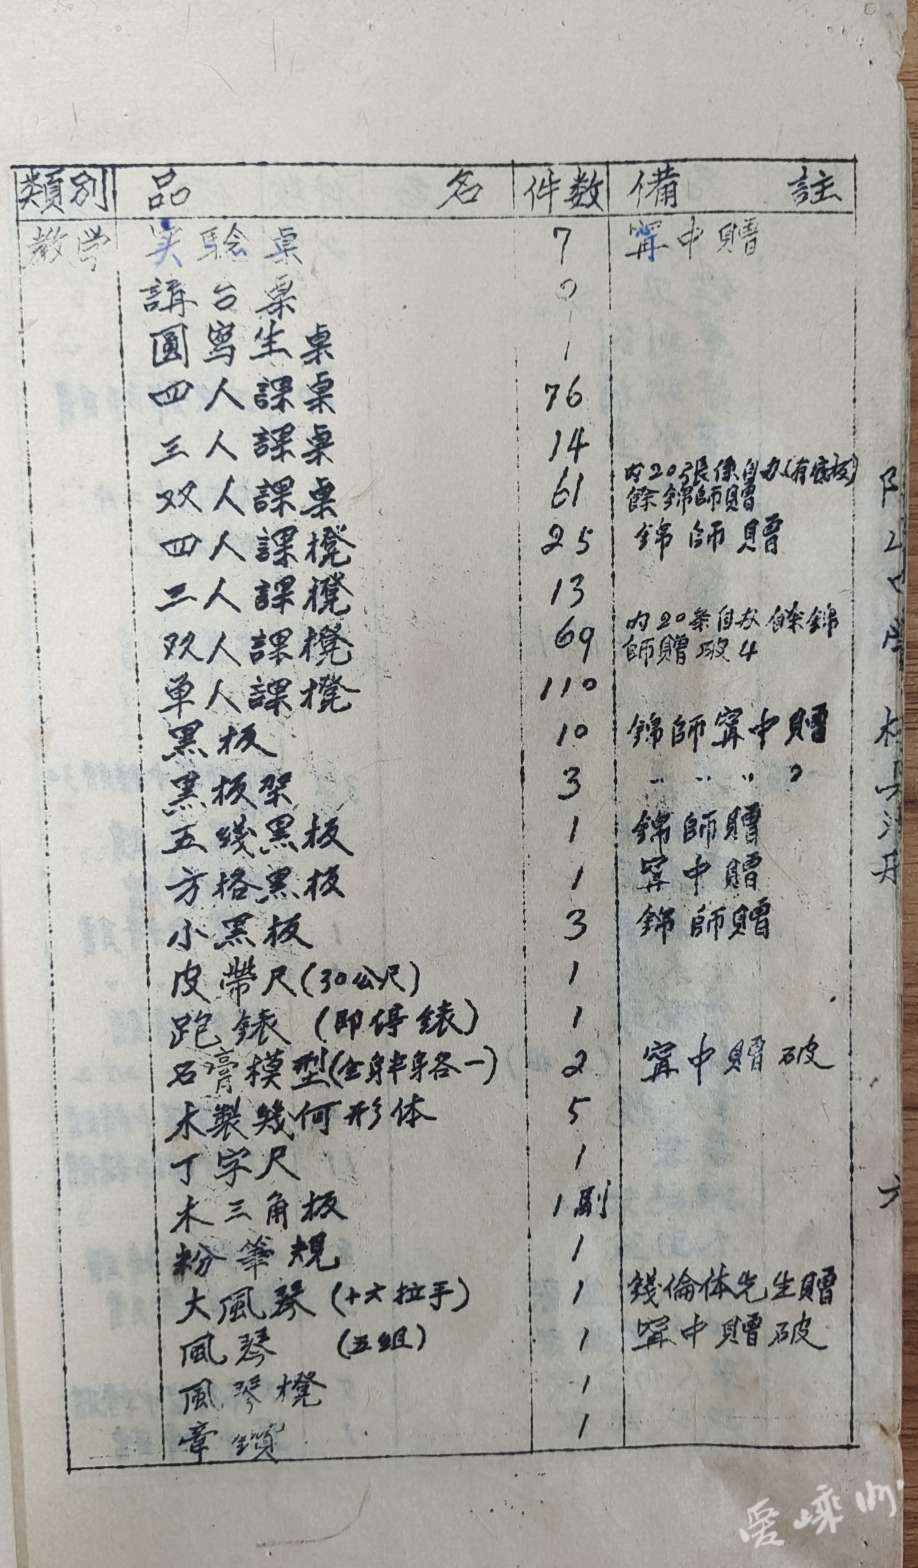 類別 品名 件数 備註
教学 实驗桌 7 甯中贈
講台桌
圓寫生桌 1
四人課桌 76
三人課桌 14
双人課桌 61 内20張係自办(有底板)
餘錦師贈
四人課櫈 25 錦師贈
三人課櫈 13
双人課櫈 69 内20条自办餘錦
師贈破4
单人課櫈 110
黑板 10 錦師甯中贈
黑板架 3 〃〃〃〃〃
五线黑板 1 錦師贈
方格黑板 1 甯中贈
小黑板 3 錦師贈
皮帶尺(30公尺) 1
跑錶(即停錶) 1
石膏模型(全身半身各一) 2 甯中贈破
木製幾何形体 5
丁字尺 1
木三角板 1副
粉筆規 1
大風琴(十六拉手) 1 錢倫体先生贈
風琴(五組) 1 甯中贈破
風琴櫈 1
章鑽 1
六
愛嵊州